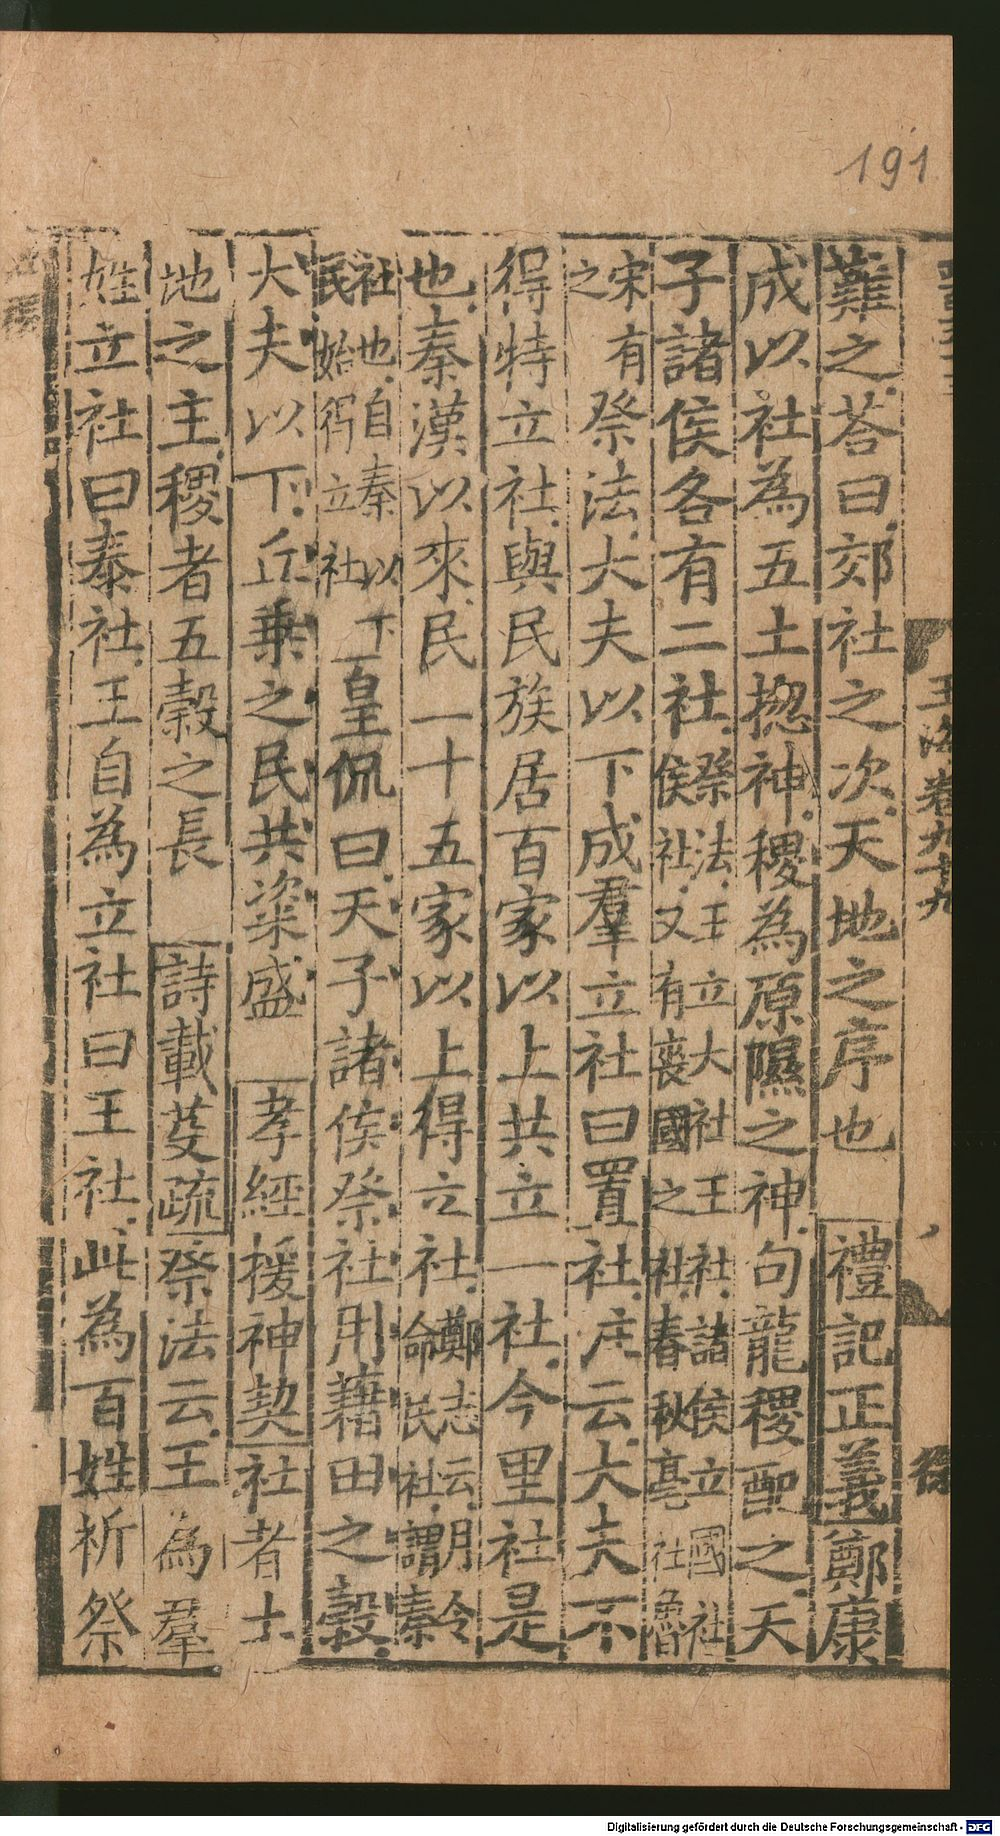 191
玉海卷九十九
難之荅曰郊社之次天地之序也 禮記正義鄭康
成以社為五土揔神稷為原隰之神句龍稷配之天
子諸侯各有二社祭法王立大社王社諸侯立國社
侯社又有喪國之社春秋亳社魯
宋有
之
祭法大夫以下成羣立社曰置社注云大夫不
得特立社與民族居百家以上共立一社今里社是
也秦漢以來民二十五家以上得立社鄭志云月令
命民社謂秦
社也自秦以下
民始得立社
皇侃曰天子諸侯祭社用藉田之穀
大夫以下丘乗之民共粢盛 孝經援神契社者土
地之主稷者五穀之長 詩載芟疏祭法云王為羣
姓立社曰泰社王自為立社曰王社此為百姓祈祭
Digitalisierung gefördert durch die Deutsche Forschungsgemeinschaft - DFG